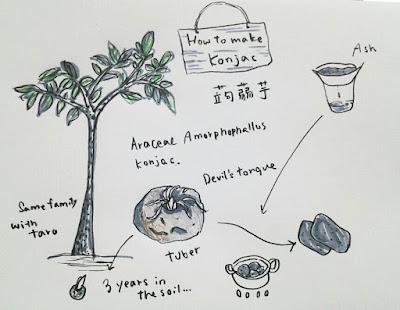 How to make
Konjac
蒟蒻芋
Ash
Araceae Amorphophallus
Konjac.
Devil's tongue
Same family
with
taro
tuber
3 years in
the soil...